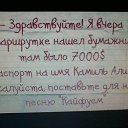 - Здравствуйте! Я вчера
маршрутке нашел бумажник
там было 7000$
паспорт на имя Камиль Али
жалуйста, поставьте для н
песню "Кайфуем